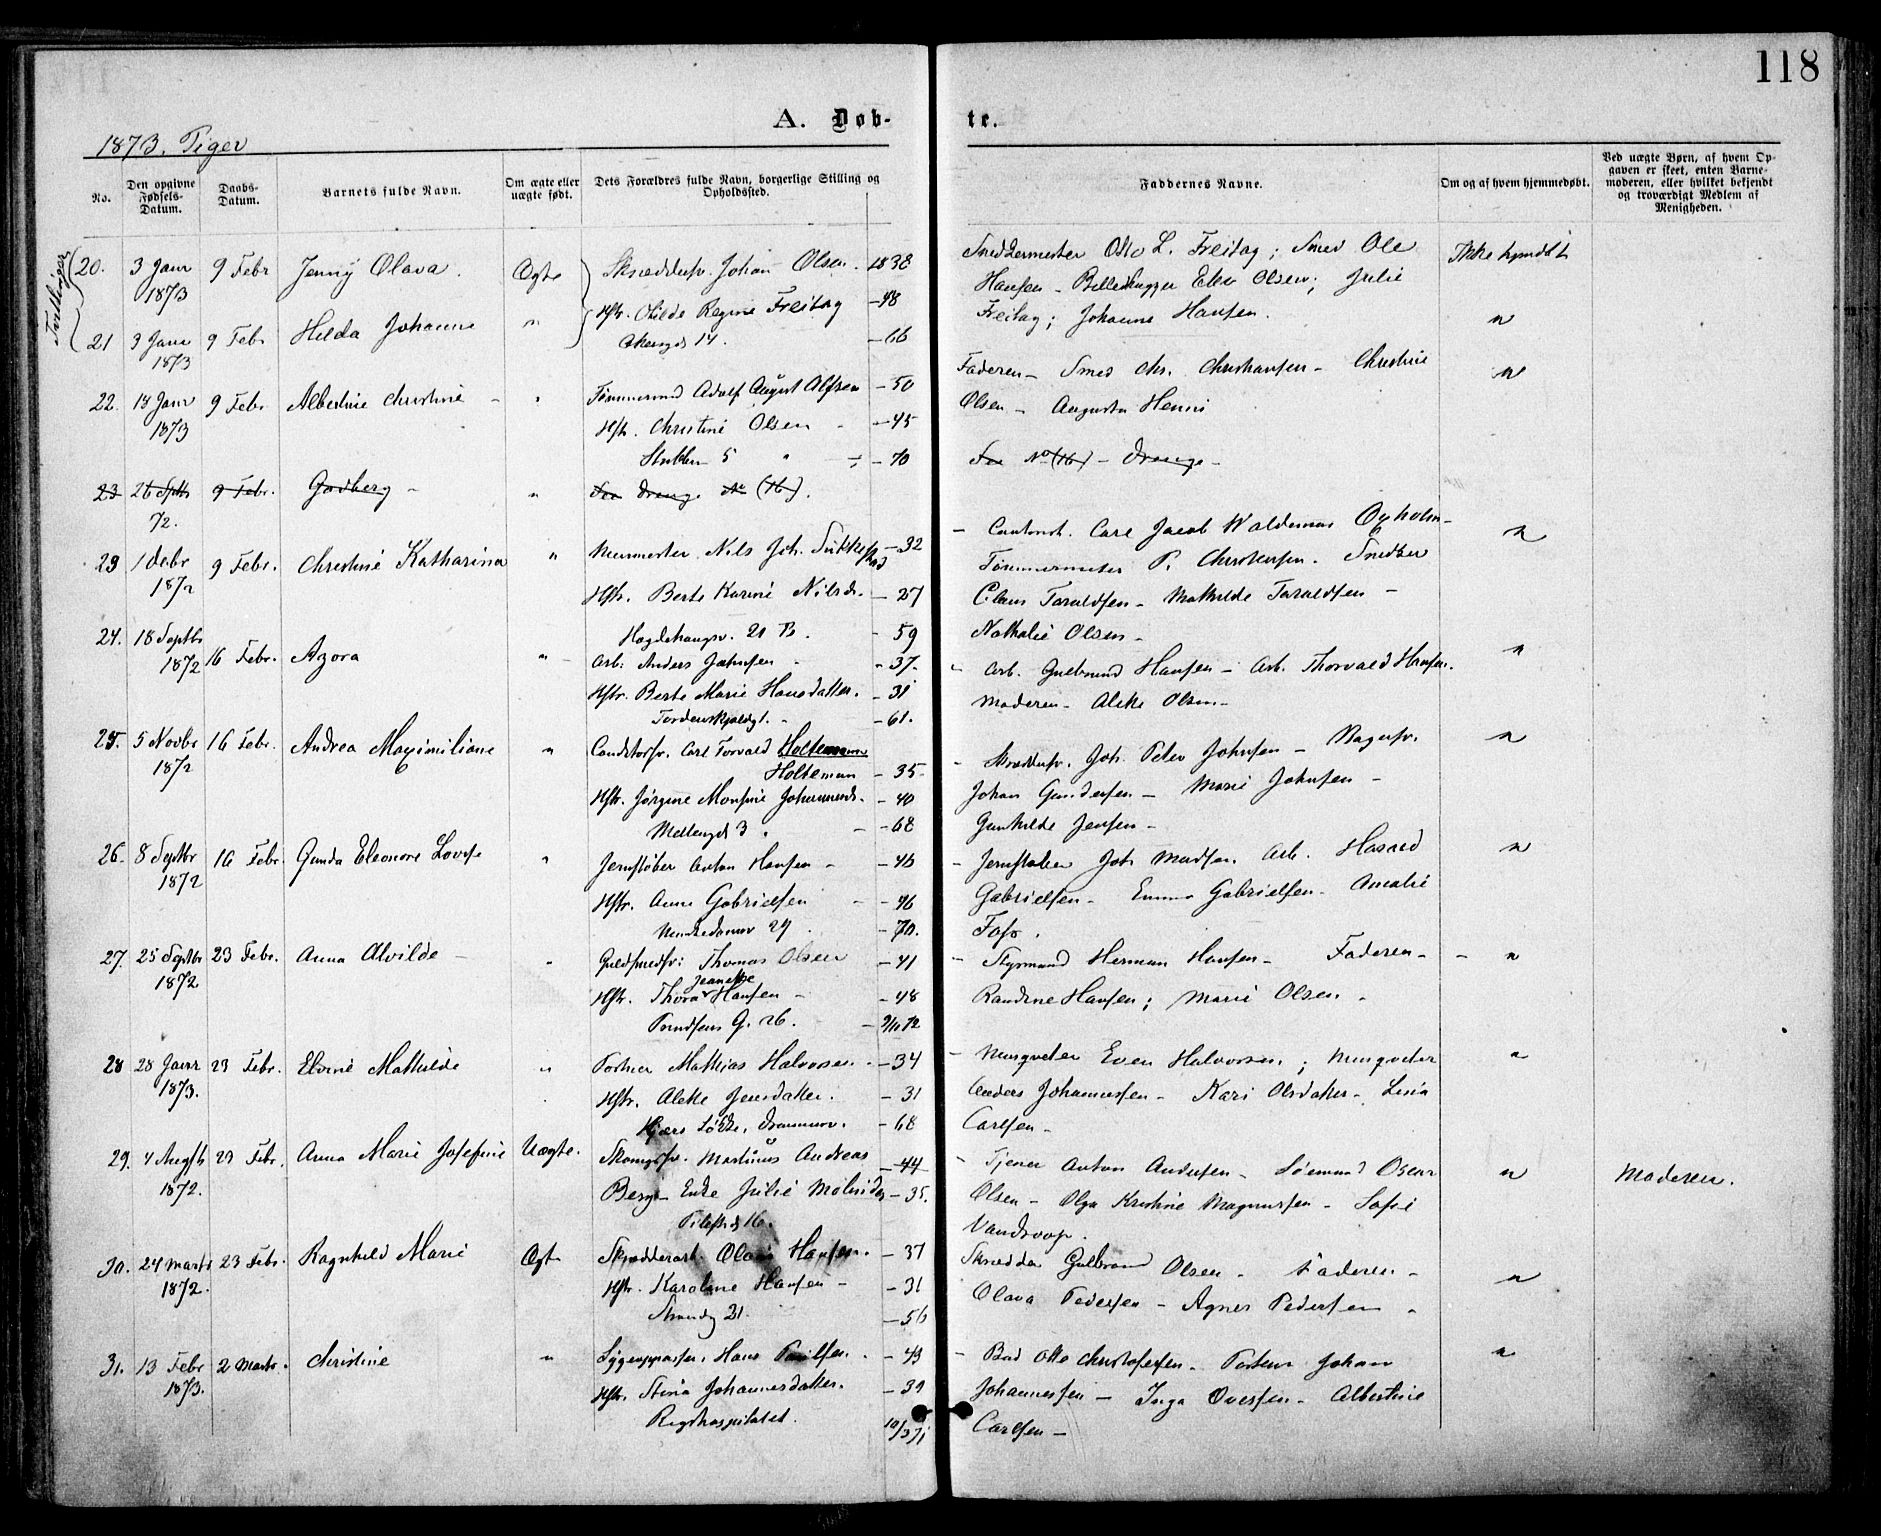 118
A. Døb-
te.
1873. Piger
No.
Den opgivne Fødsels-Datum.
Daabs-Datum.
Barnets fulde Navn.
Om ægte eller uægte født.
Dets Forældres fulde Navn, borgerlige Stilling og Opholdssted.
Faddernes Navne.
Om og af hvem hjemmedøbt.
Ved uægte Børn, af hvem Op-
gaven er skeet, enten Barne-
moderen, eller hvilket bekjendt
og troværdigt Medlem af
Menigheden.
Tvillinger
20. 3 Janr 1873 9 Febr Jenny Olava. Ægte Skræddersv. Johan Olsen. 1838
Hstr. Regine Freitag -48
Akersgd 14. -66
Snedkermester Otto L. Freitag; Smed Ole
Hansen - Billedhugger Olsen; Julie
Freitag; Johanne Hansen.
Ikke hjemdøbt
21 3 Janr 1873 9 Febr Hilda Johanne "
22. 14 Janr 1873 9 Febr Albertine Christine - " Tømmermd Adolf August Alfsen -50
Hstr. Christine Olsen - -45
5 " -70
Faderen - Smed Chr. Christiansen - Christine
Olsen - Augusta
23 26 Sptb 72. 9 Febr. Godberg - " See Drenge No (16).
See No (16) - Drenge -
23 1 Debr 1872 9 Febr. Christine Katharina " Murmester Nils Joh. -32
Hstr. Berte Karine Nilsd. -27
Hægdehaugsv. 21 B. -59
- Carl Jacob Waldemar
Tømmermester P. Christensen. Snedker
Claus Taraldsen - Mathilde Taraldsen -
Nathalie Olsen -
24. 18 Septbr 1872 16 Febr. Azora " Arb: Anders Jahnsen - -37.
Hstr. Berte Marie Hansdatter. -31
Tordenskjoldgd. - -61.
Arb. Gulbrand Hansen - Arb. Thorvald Hansen.
Moderen - Olsen -
25. 5 Novbr 1872 16 Febr. Andrea Maximiliane " Carl Torvald Holtemann
Holteman -35
Hstr. Jørgine Monsine Johannesd. -40
Møllergd 3. -68
- Skræddersv. Joh. Peter Johnsen - Bagersv.
Johan Gundersen - Marie Johnsen -
Gunhilde Jensen -
26. 8 Septbr 1872 16 Febr. Gunda Eleonore Lovise " Jernstøber Anton Hansen - -46
Hstr. Anne Gabrielsen -46
Munkedamsv 29 -70.
- Jernstøber Joh Madsen. Arb.
Gabrielsen - Emma Gabrielsen - Amalie
Foss.
27. 25 Septbr 1872 23 Febr. Anna Alvilde - " Guldsmedsv: Thomas Olsen -41
Hstr. Thora Jeanette Hansen - -48
G. 26. -
- Styrmand Herman Hansen - Faderen -
Randine Hansen; Marie Olsen.
28 28 Janr 1873. 23 Febr. Elvine Mathilde " Portner Mathias Halvorsen. -34
Hstr. Jensdatter. -31
Løkke, Drammensv. -68
- Musqveter Even Halvorsen; Musqveter
Anders Johannessen - Kari Olsdatter - Lina
Carlsen -
29. 4 Augst 1872. 23 Febr. Anna Marie Josefine Uægte. Martinus Andreas -44
Berg - Enke Julie -35.
Pilestd 16.
- Tjener Anton Andersen - Sømand Oscar
Olsen - Olga Kristine Magnussen - Sofie
Moderen.
30. 24 Marts 1872. 23 Febr. Ragnhild Marie Ægt Skrædderarb. Hansen. -37
Hstr. Karoline Hansen - -31
Strandg 21. -56
Skrædder Gulbrand Olsen - Faderen -
Olava Pedersen - Agnes Pedersen.
31. 13 Febr 1873. 2 Marts. Christine " Sygeoppasser. Hans -43
Hstr. Stina Johannesdatter. -39
Rigshospitalet.
- Otto Christofersen - Portner Johan
Johannessen - Inga Oversen - Albertine
Carlsen -